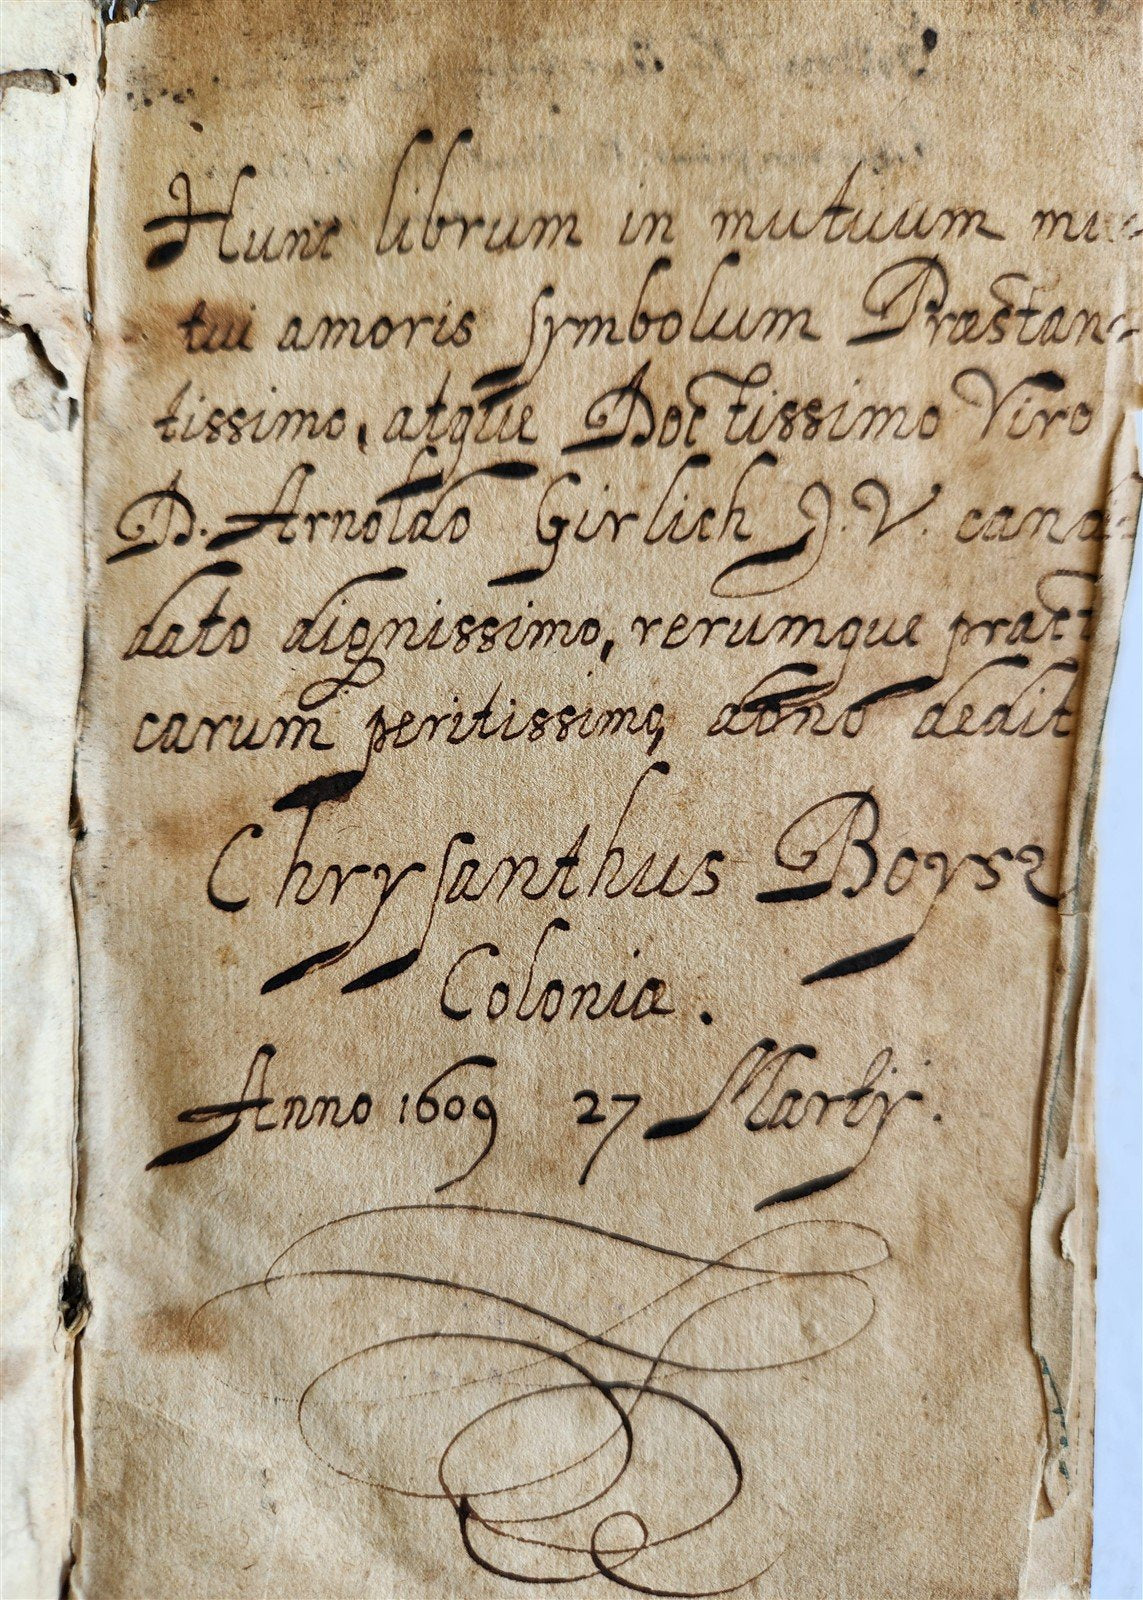 Hunc librum in mutuum mu-
tui amoris symbolum Præstan-
tissimo, atque Doctissimo Viro
D. Arnoldo Girlich J. V. candi
dato dignissimo, rerumque pract
carum peritissimo, dono dedit
Chrysanthus Boysz
Coloniæ.
Anno 1609 27 Martij.